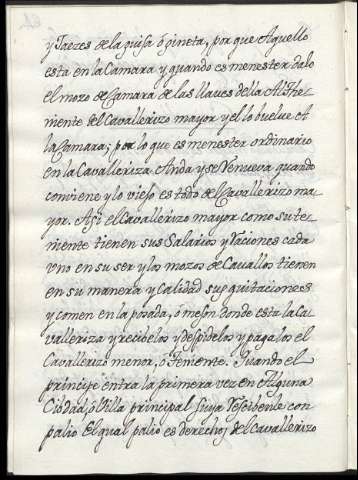 y Jaezes de la guisa ó gineta, por que Aquello
esta en la Camara y quando es menester dale
el mozo de Camara de las llaves della Al The-
niente del Cavallerizo mayor y el lo buelve A
la Camara; por lo que es menester ordinario
en la Cavalleriza Anda y se Renueva quando
conviene y lo viejo es todo del Cavallerizo ma-
yor. Asi el Cavallerizo mayor como su te-
niente tienen sus Salarios y Raciones cada
uno en su ser y los mozos de Cavallos tienen
en su manera y Calidad sus quitaciones
y comen en la posada, ó meson donde esta la Ca-
valleriza y recibelos y despidelos y pagalos el
Cavallerizo menor, ó Teniente. Quando el
principe entra la primera vez en Alguna
Cibdad, ó Villa principal suya Rescibenle con
palio El qual palio es derecho del Cavallerizo